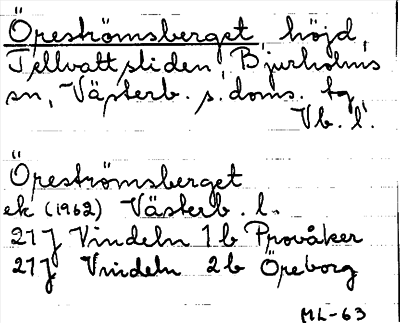 Öreströmsberget, höjd,
Tellvattsliden, Bjurholms
sn, Västerb. s. doms. tg
Vb. l.
Öreströmsberget
ek (1962) Västerb. l.
21J Vindeln 1b Provåker
21J Vindeln 2b Öreborg
ML-63